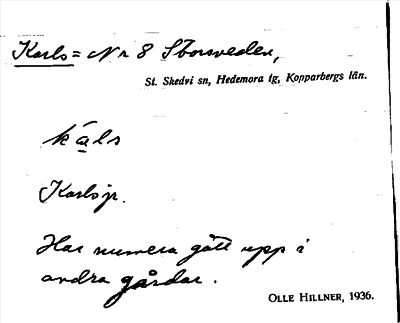 Karls = Nr 8 Storsveden,
St. Skedvi sn, Hedemora tg, Kopparbergs län.
kạls
Karls jr.
Har numera gått upp i
andra gårdar.
OLLE HILLNER, 1936.